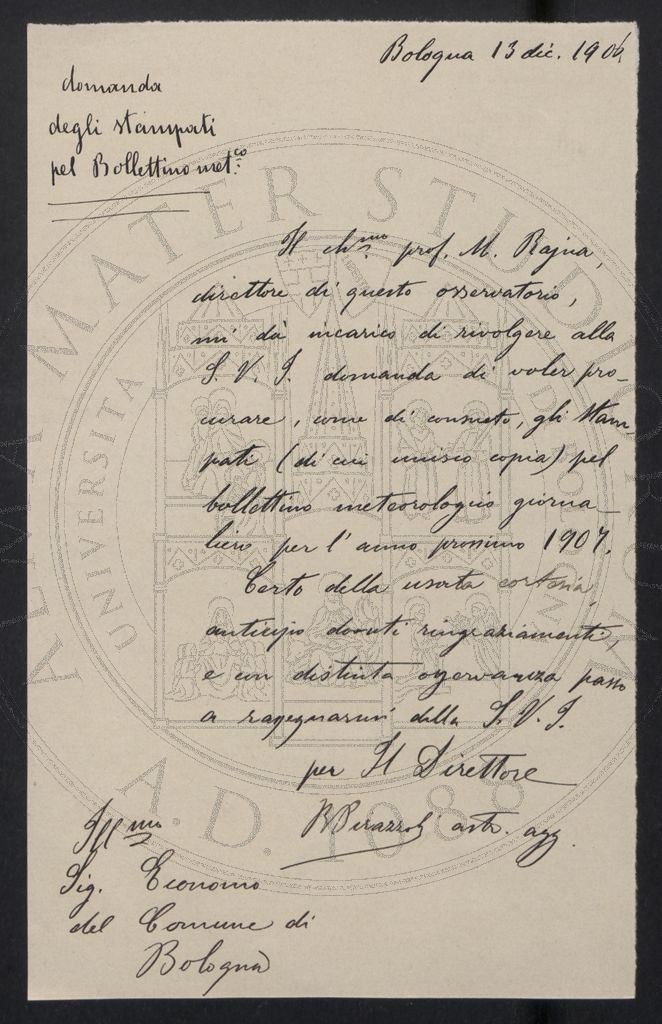 Bologna 13 dic. 1906
domanda
degli stampati
pel Bollettino met.co
Il ch.mo prof. M. Rajna,
direttore di questo osservatorio,
mi dà incarico di rivolgere alla
S. V. I. domanda di voler pro-
curare, come di consueto, gli stam-
pati (di cui unisco copia) pel
bollettino meteorologico giorna-
liero per l'anno prossimo 1907.
Certo della usata cortesia,
anticipo dovuti ringraziamenti,
e con distinta osservanza passo
a rassegnarmi della S. V. I.
per Il Direttore
R Pirazzoli astr. agg.
Ill mo
Sig. Economo
del Comune di
Bologna
ALMA MATER STUDIORUM
UNIVERSITA DI BOLOGNA
A.D. 1088